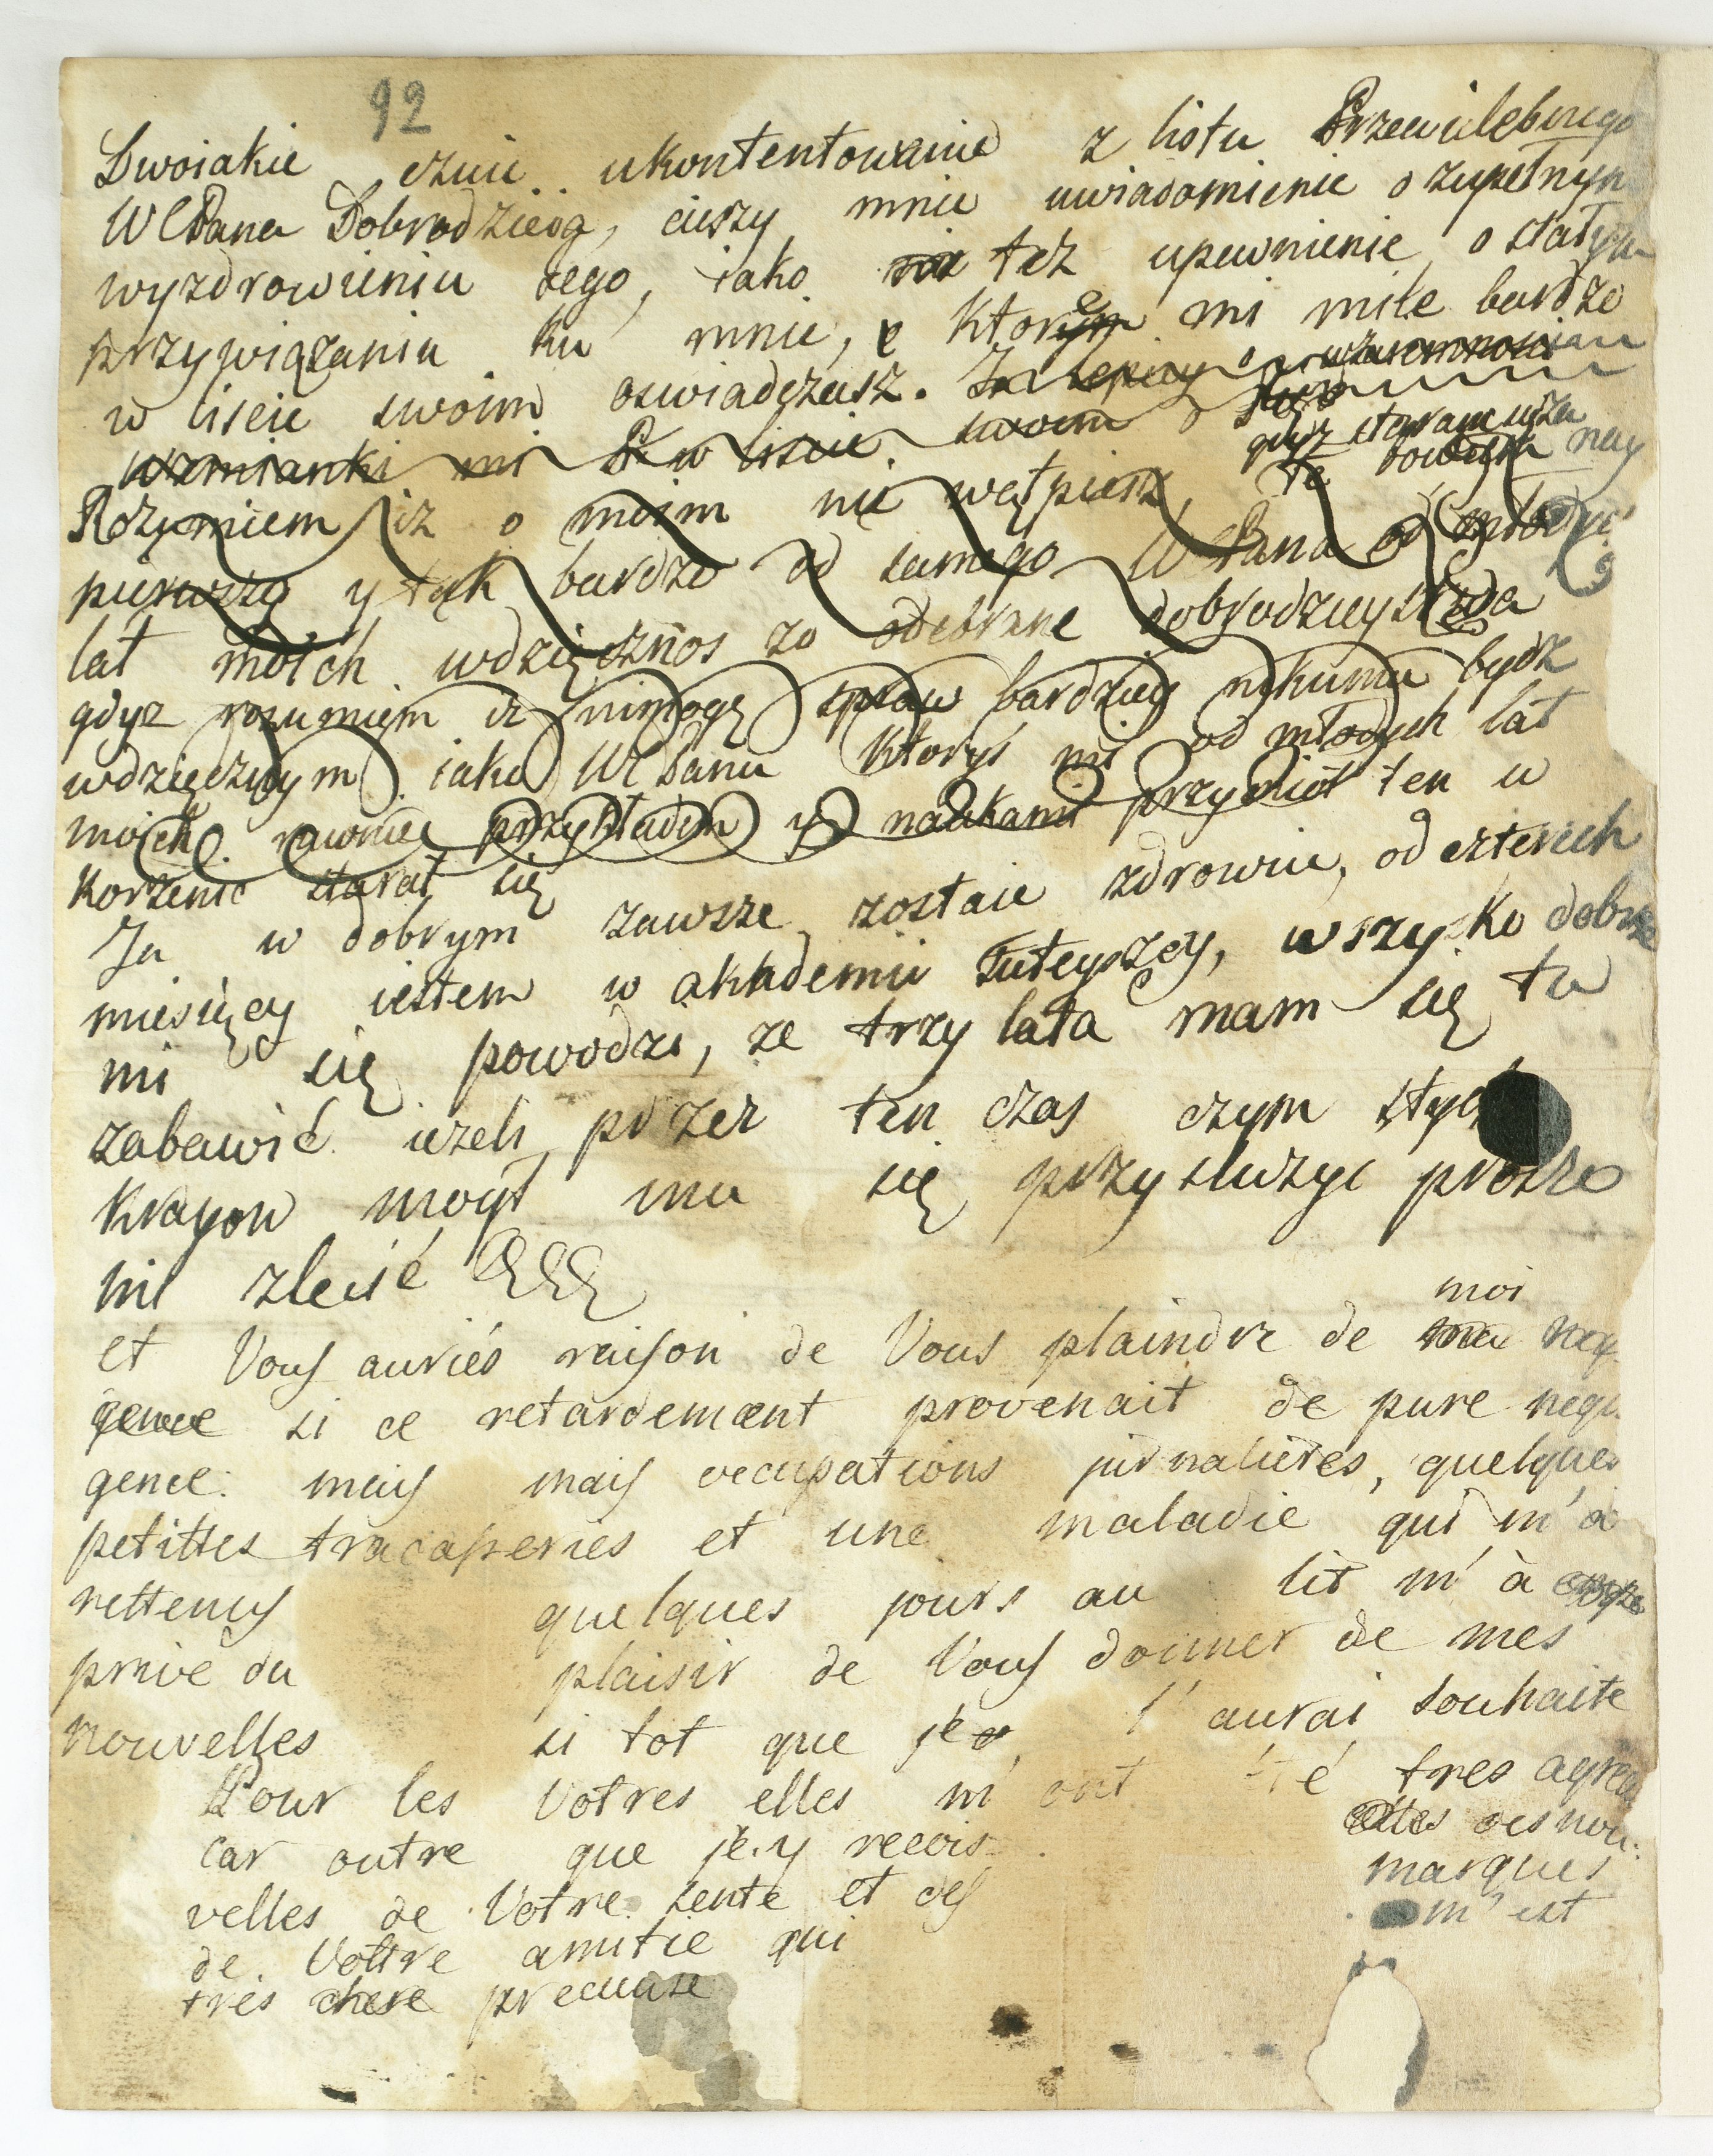 92
Dwoiakie czuie ukontentowanie z listu Przewielebnego
WMPana Dobrodzieia, cieszy mnie uwiadomienie o zupełnym
wyzdrowieniu iego, iako też upewnienie o stałym
przywiązaniu ku mnie, o ktorem mi mile bardzo
w liscie swoim oswiadczasz. wzaiemnosci
wzmianki mi w liscie swoim o
gdyz staram
Rozumiem iz o moim nie wątpisz, te bowiem nay
pierwszą y tak bardzo od samego WPana od młodych
lat moich wdzięcznos za odebrane dobrodzieystwa
gdyz rozumiem iz nimogę bardziey nikumu bydz
wdzięcznym iako WMPanu ktoryś mi od młodych lat
moich rownie przykładem y naukami przymiot ten w
korzenic starał się
Ja w dobrym zawsze zostaie zdrowiu, od czterech
miesięcy iestem w akkademii tuteyszey, wszysko dobrze
mi się powodzi, ze trzy lata mam się tu
zabawić iezeli przez ten czas czym stych
kraiow mogł mu się przysłuzyc prosze
mi zlecić
moi
et Vous auriés raison de Vous plaindre de ma neg
gence si ce retardement provenait de pure negli
gence: mais mais occupations jurnalieres, quelques
petittes tracasseries et une maladie qui m'a
rettenus quelques jours au lit m'à
prive du plaisir de Vous donner de mes
nouvelles si tot que je l'aurai souhaite
Pour les Votres elles m'ont été tres agrea
car outre que je y recois des nou:
velles de Votre sente et des marques
de Vottre amitie qui m'est
tres chere precieuse